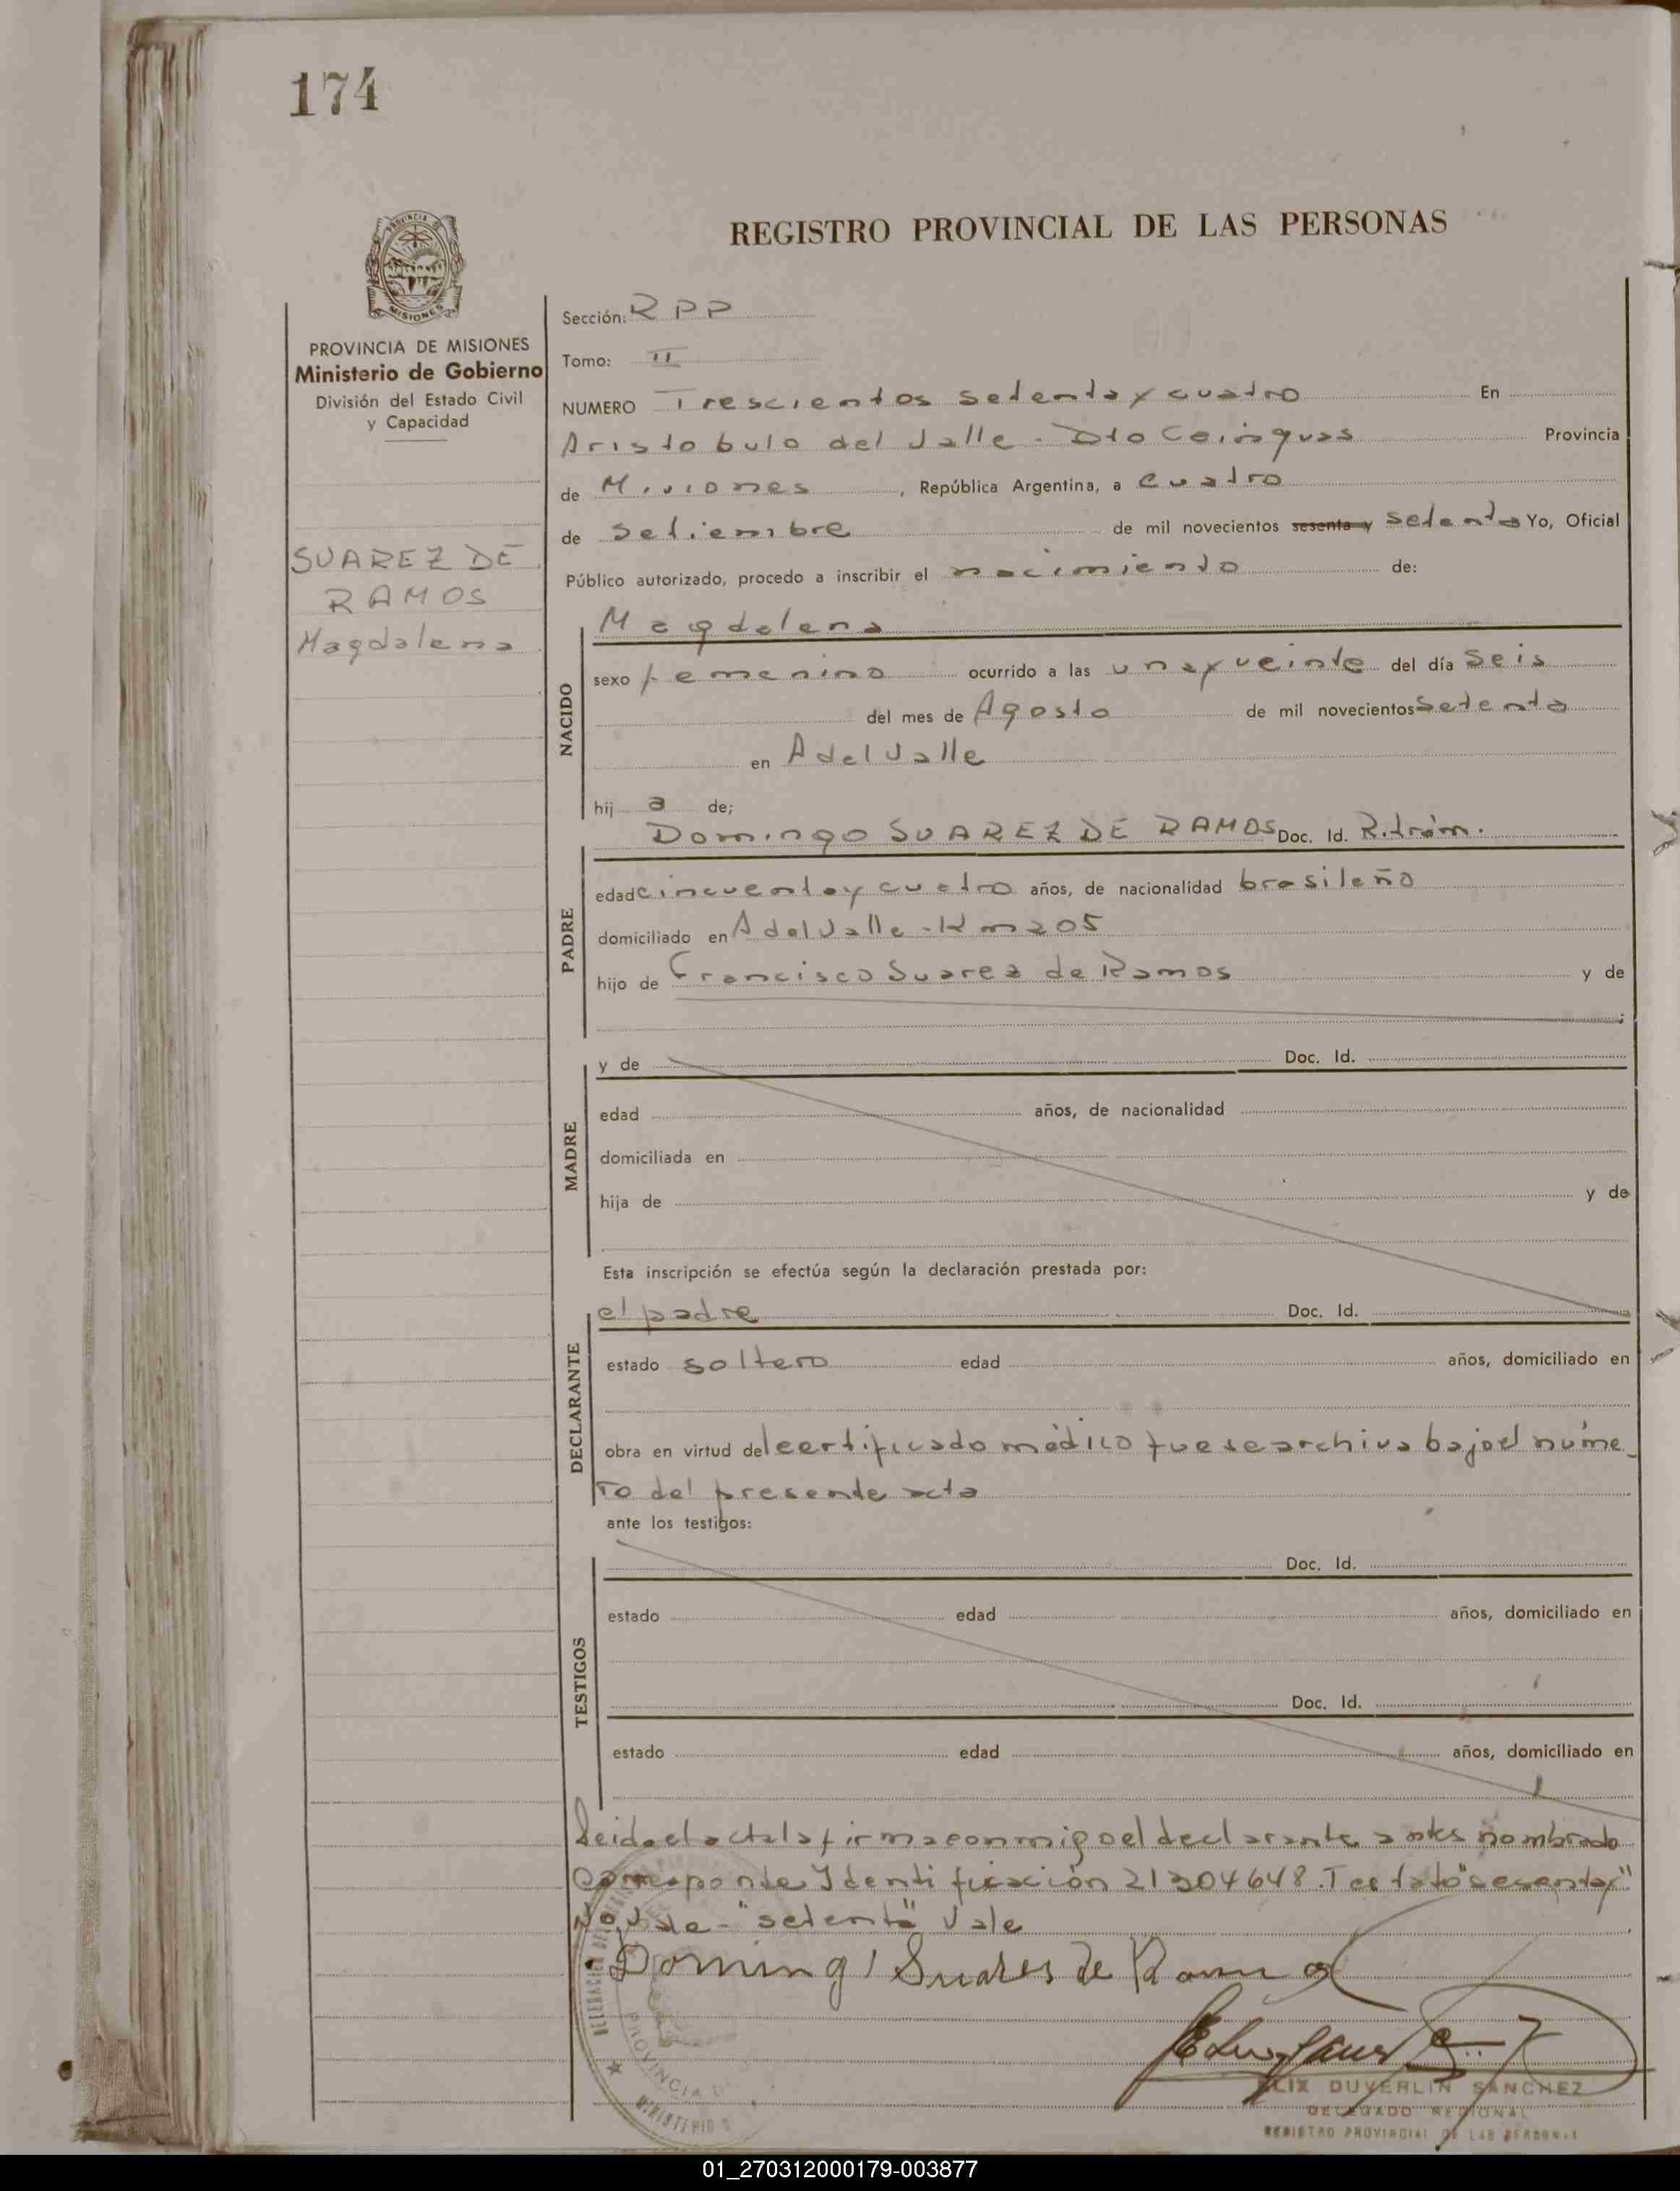 174
REGISTRO PROVINCIAL DE LAS PERSONAS
PROVINCIA
MISIONES
PROVINCIA DE MISIONES
Ministerio de Gobierno
División del Estado Civil
y Capacidad
SUAREZ DE
RAMOS
Magdalena
Sección: RPP
Tomo: II
NUMERO Trescientos setenta y cuatro En
Aristobulo del Valle - Dto Cainguas Provincia
de Misiones, República Argentina, a cuatro
de setiembre de mil novecientos sesenta y setenta Yo, Oficial
Público autorizado, procedo a inscribir el nacimiento de:
NACIDO
Magdalena
sexo femenino ocurrido a las una y veinte del día seis
del mes de Agosto de mil novecientos setenta
en A del Valle
hij a de;
PADRE
Domingo SUAREZ DE RAMOS Doc. Id. R. trám.
edad cincuenta y cuatro años, de nacionalidad brasileño
domiciliado en A del Valle - Km 205
hijo de Francisco Suarez de Ramos y de
MADRE
y de Doc. Id.
edad años, de nacionalidad
domiciliada en
hija de y de
Esta inscripción se efectúa según la declaración prestada por:
DECLARANTE
el padre Doc. Id.
estado soltero edad años, domiciliado en
obra en virtud del certificado médico que se archiva bajo el núme
ro del presente acta
ante los testigos:
TESTIGOS
Doc. Id.
estado edad años, domiciliado en
Doc. Id.
estado edad años, domiciliado en
Leida el acta la firma conmigo el declarante antes nombrado
Corresponde Identificación 21304648. Testato "sesenta y"
No vale - "setenta" Vale
Domingo Suares de Ramos
PROVINCIA
MINISTERIO
DUVERLIN SANCHEZ
DELEGADO REGIONAL
REGISTRO PROVINCIAL DE LAS PERSONAS
01_270312000179-003877